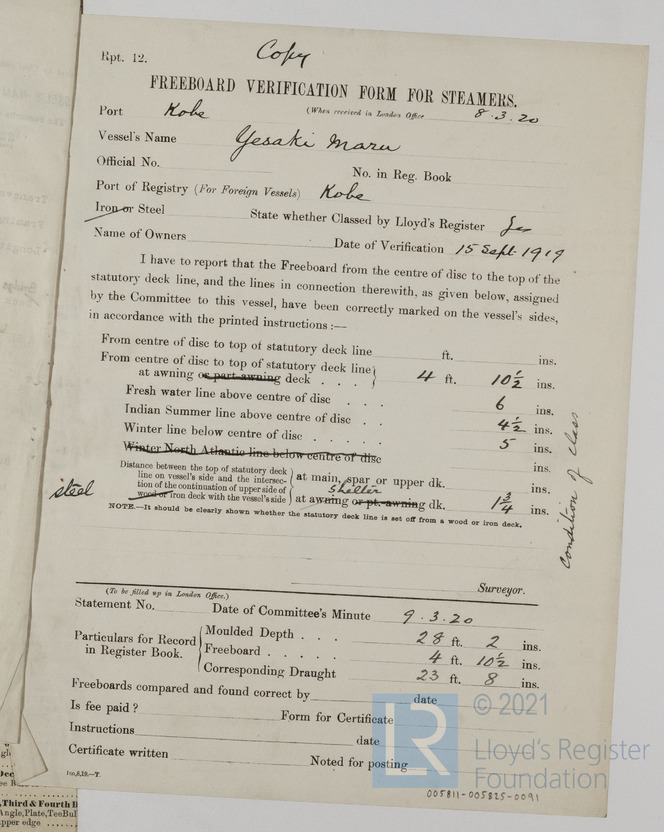 Rpt. 12.
Copy
FREEBOARD VERIFICATION FORM FOR STEAMERS.
Port Kobe (When received in London Office 8.3.20
Vessel's Name Yesaki Maru
Official No.
No. in Reg. Book
Port of Registry (For Foreign Vessels) Kobe
Iron or Steel State whether Classed by Lloyd's Register Yes
Name of Owners Date of Verification 15 Sept. 1919
I have to report that the Freeboard from the centre of disc to the top of the
statutory deck line, and the lines in connection therewith, as given below, assigned
by the Committee to this vessel, have been correctly marked on the vessel's sides,
in accordance with the printed instructions :—
From centre of disc to top of statutory deck line ft. ins.
From centre of disc to top of statutory deck line
at awning or part awning deck . . . 4 ft. 10½ ins.
Fresh water line above centre of disc . . . 6 ins.
Indian Summer line above centre of disc . . 4½ ins.
Winter line below centre of disc . . . . . 5 ins.
Winter North Atlantic line below centre of disc ins.
Distance between the top of statutory deck
line on vessel's side and the intersec-
tion of the continuation of upper side of
wood or iron deck with the vessel's side
steel
at main, spar or upper dk. ins.
shelter
at awning or pt. awning dk. 1¾ ins.
NOTE.—It should be clearly shown whether the statutory deck line is set off from a wood or iron deck.
Condition of class
Surveyor.
(To be filled up in London Office.)
Statement No. Date of Committee's Minute 9.3.20
Particulars for Record
in Register Book.
Moulded Depth . . . 28 ft. 2 ins.
Freeboard . . . . . 4 ft. 10½ ins.
Corresponding Draught 23 ft. 8 ins.
Freeboards compared and found correct by date
Is fee paid ? Form for Certificate
Instructions date
Certificate written Noted for posting
LR
© 2021
Lloyd's Register
Foundation
005811-005825-0091
Third & Fourth
Angle, Plate, Tee
upper edge